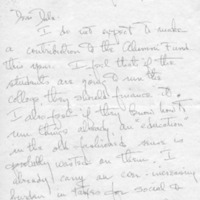 Dear Dale:
I do not expect to make
a contribution to the Alumni Fund
this year. I feel that if the
students are going to run the
college they should finance it.
I also feel if they know how to
run things already, an education
in the old fashioned sense is
specially wasted on them. I
already carry an ever-increasing
burden in taxes for social